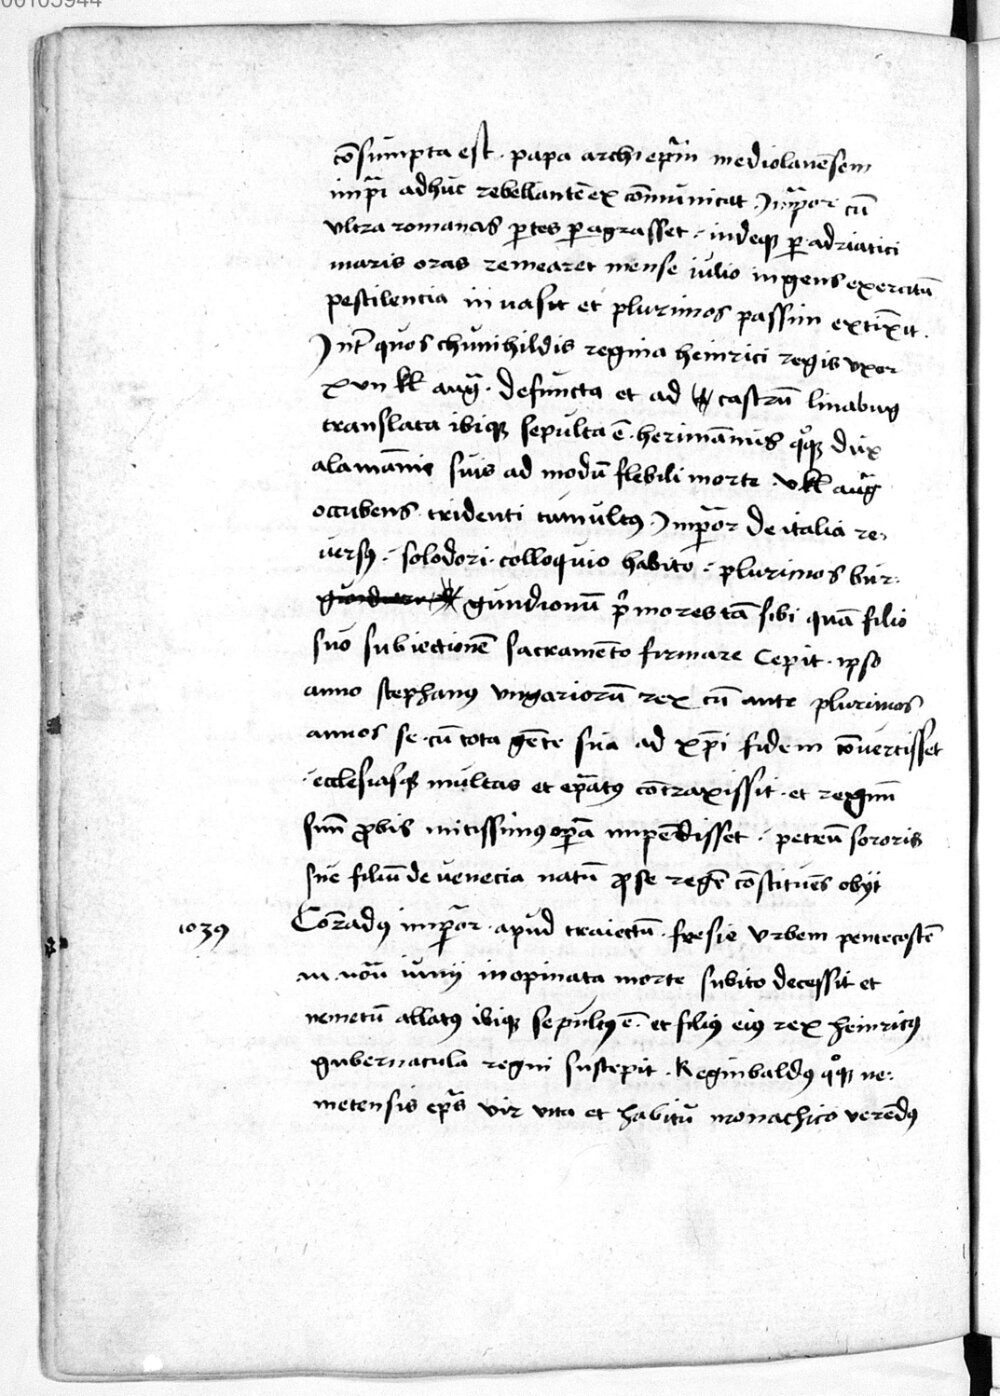 00105944
co̅sumpta est · papa archiep̅m mediolane̅sem
imp̅ri adhuc rebellante̅ ex co̅municat · Imp̅ator cu̅
vltra romanas p̱tes p̱agrasset · indeqꝫ p̱ adriatici
maris oras remearet mense iulio ingens exercitu̅
pestilencia inuasit et plurimos passim exti̅xit ·
Int̅ quos chunihildis regina heinrici regis vxor
xvii kl̅ aug̅ · defuncta et ad castru̅ linabug
translata ibiqꝫ sepulta e̅ · herima̅nus qͦqꝫ dux
alama̅nie suis ad modu̅ flebili morte · v kl̅ aug̅
occubens tridenti tumultꝰ · Imp̅ator de italia re-
uersꝰ · solodori · colloquio habito · plurimos bur-
gundionu̅ p̅mores ta̅ sibi qua̅ filio
suo subiectione̅ sacrame̅to firmare cepit · ipso
anno stephanꝰ vngarioru̅ rex cu̅ ante plurimos
annos se · cu̅ tota ge̅te sua ad xp̅i fidem co̅uertisset
· ecclesiasqꝫ multas et ep̅atꝰ co̅traxissit · et regnu̅
suu̅ ꝓbis mitissimꝰ op̅am impe̅disset · petru̅ sororis
sue filiu̅ de venecia natu̅ ꝓ se rege̅ co̅stitue̅s obijt
1039 Co̅radꝰ imp̅ator · apud traiectu̅ · fresie vrbem pentecoste̅
iii non̅ iunij inopinata morte subito decessit et
nemetu̅ allatꝰ ibiqꝫ sepultꝰ e̅ · et filiꝰ eiꝰ rex heinricꝰ
gubernacula regni suscepit · Reginbaldꝰ qͦqꝫ ne-
metensis ep̅s vir vita et habitu̅ monachico vere̅dꝰ